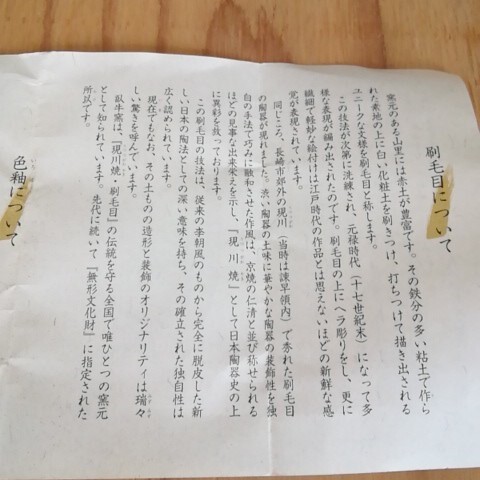 刷毛目について
窯元のある山里には赤土が豊富です。その鉄分の多い粘土で作ら
れた素地の上に白い化粧土を刷きつけ、打ちつけて描き出される
ユニークな文様を刷毛目と称します。
この技法が次第に洗練され、元禄時代（十七世紀末）になって多
様な表現が編み出されたのです。刷毛目の上にヘラ彫りをし、更に
繊細で軽妙な絵付けは江戸時代の作品とは思えないほどの新鮮な感
覚が表現されています。
同じころ、長崎市郊外の現川（当時は諫早領内）で秀れた刷毛目
の陶器が現れました。渋い陶器の土味に華やかな陶器の装飾性を独
自の手法で巧みに融和させた作風は、京焼の仁清と並び称せられる
ほどの見事な出来栄えを示し、『現川焼』として日本陶器史の上
に異彩を放っております。
この刷毛目の技法は、従来の李朝風のものから完全に脱皮した新
しい日本の陶法としての深い意味を持ち、その確立された独自性は
広く認められています。
現在でもなお、その土ものの造形と装飾のオリジナリティは瑞々
しい驚きを呼んでいます。
臥牛窯は、「現川焼・刷毛目」の伝統を守る全国で唯ひとつの窯元
として知られています。先代に続いて『無形文化財』に指定された
所以です。
色釉について